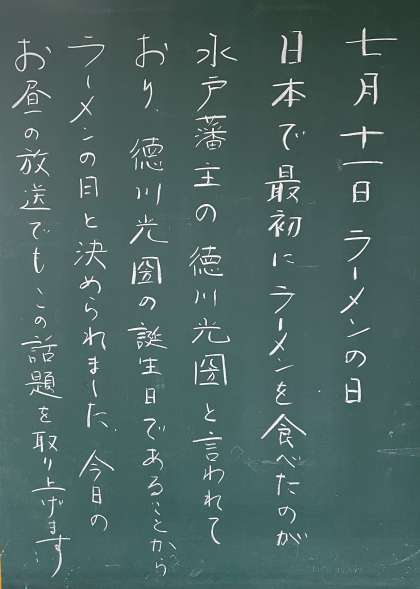 七月十一日 ラーメンの日
日本で最初にラーメンを食べたのが
水戸藩主の徳川光圀と言われて
おり、徳川光圀の誕生日であることから
ラーメンの日と決められました。今日の
お昼の放送でもこの話題を取り上げます